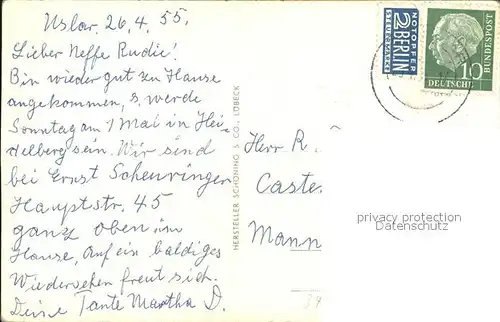 Uslar, 26.4.55.
Lieber Neffe Rudie!
Bin wieder gut zu Hause
angekommen, u. werde
Sonntag am 1 Mai in Hei-
delberg sein. Wir sind
bei Ernst Scheuringer
Hauptstr. 45
ganz oben im
Hause, Auf ein baldiges
Wiedersehen freut sich
Deine Tante Martha D.
HERSTELLER SCHÖNING & CO., LÜBECK
NOTOPFER
2 BERLIN
STEUERMARKE
10
DEUTSCHE BUNDESPOST
Herr R.
Caste
Mann
privacy protection
Datenschutz